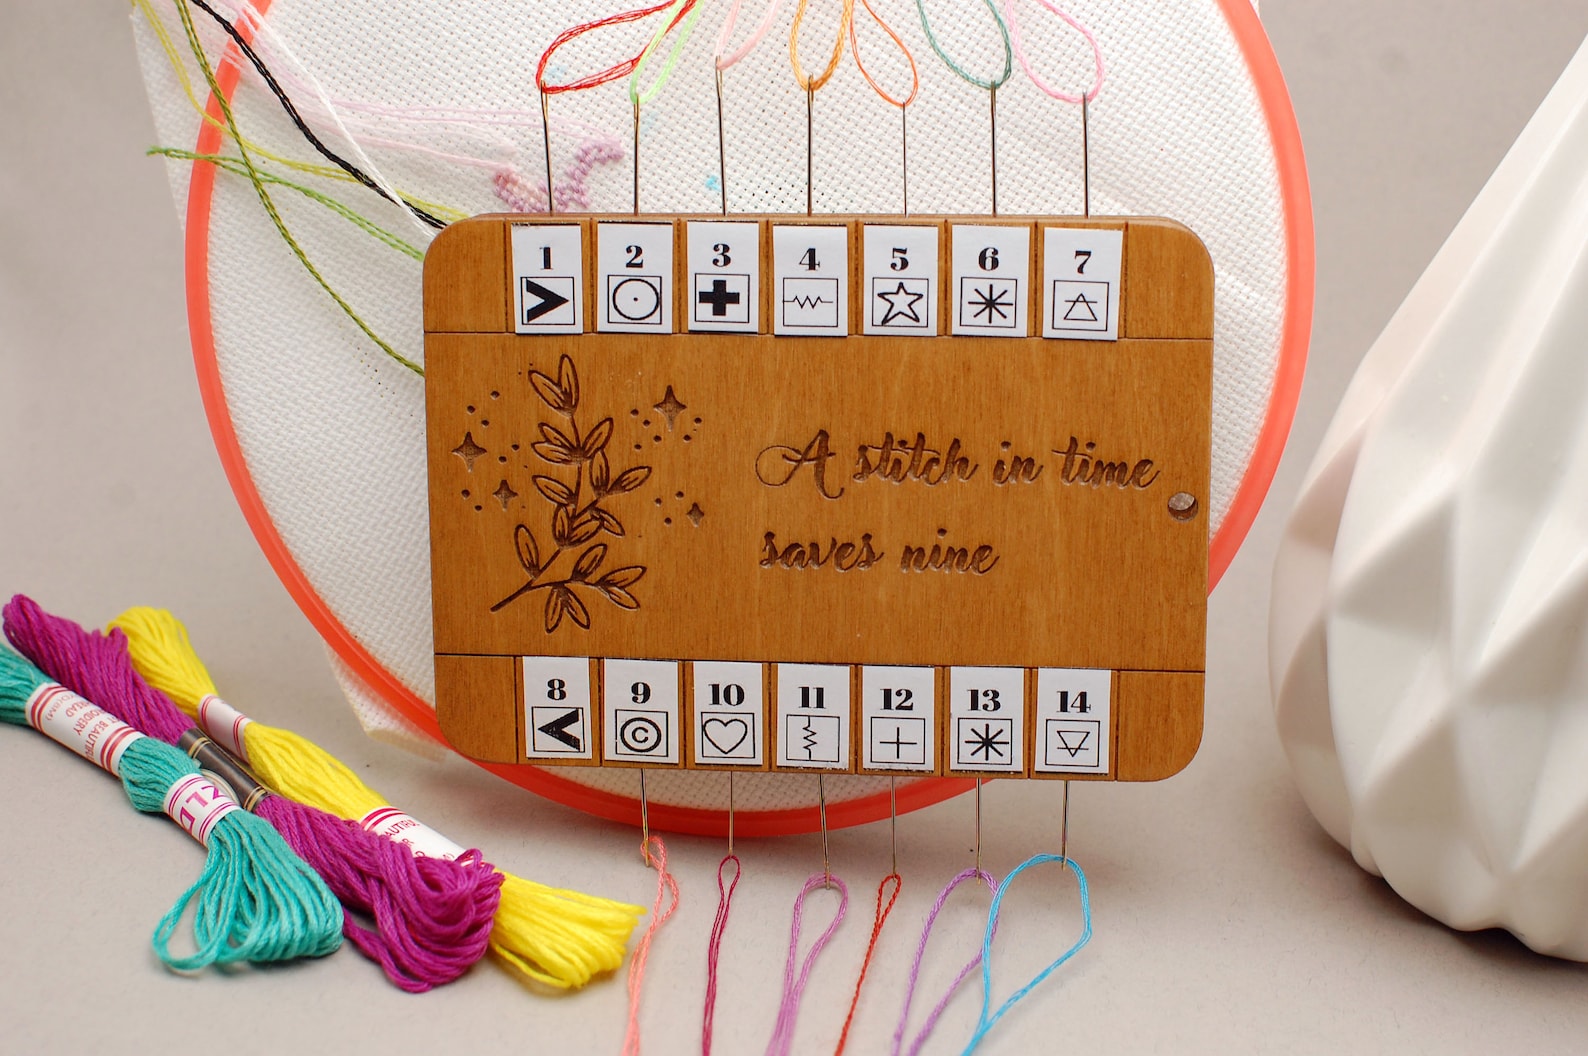 1 2 3 4 5 6 7
A stitch in time
saves nine
8 9 10 11 12 13 14
©